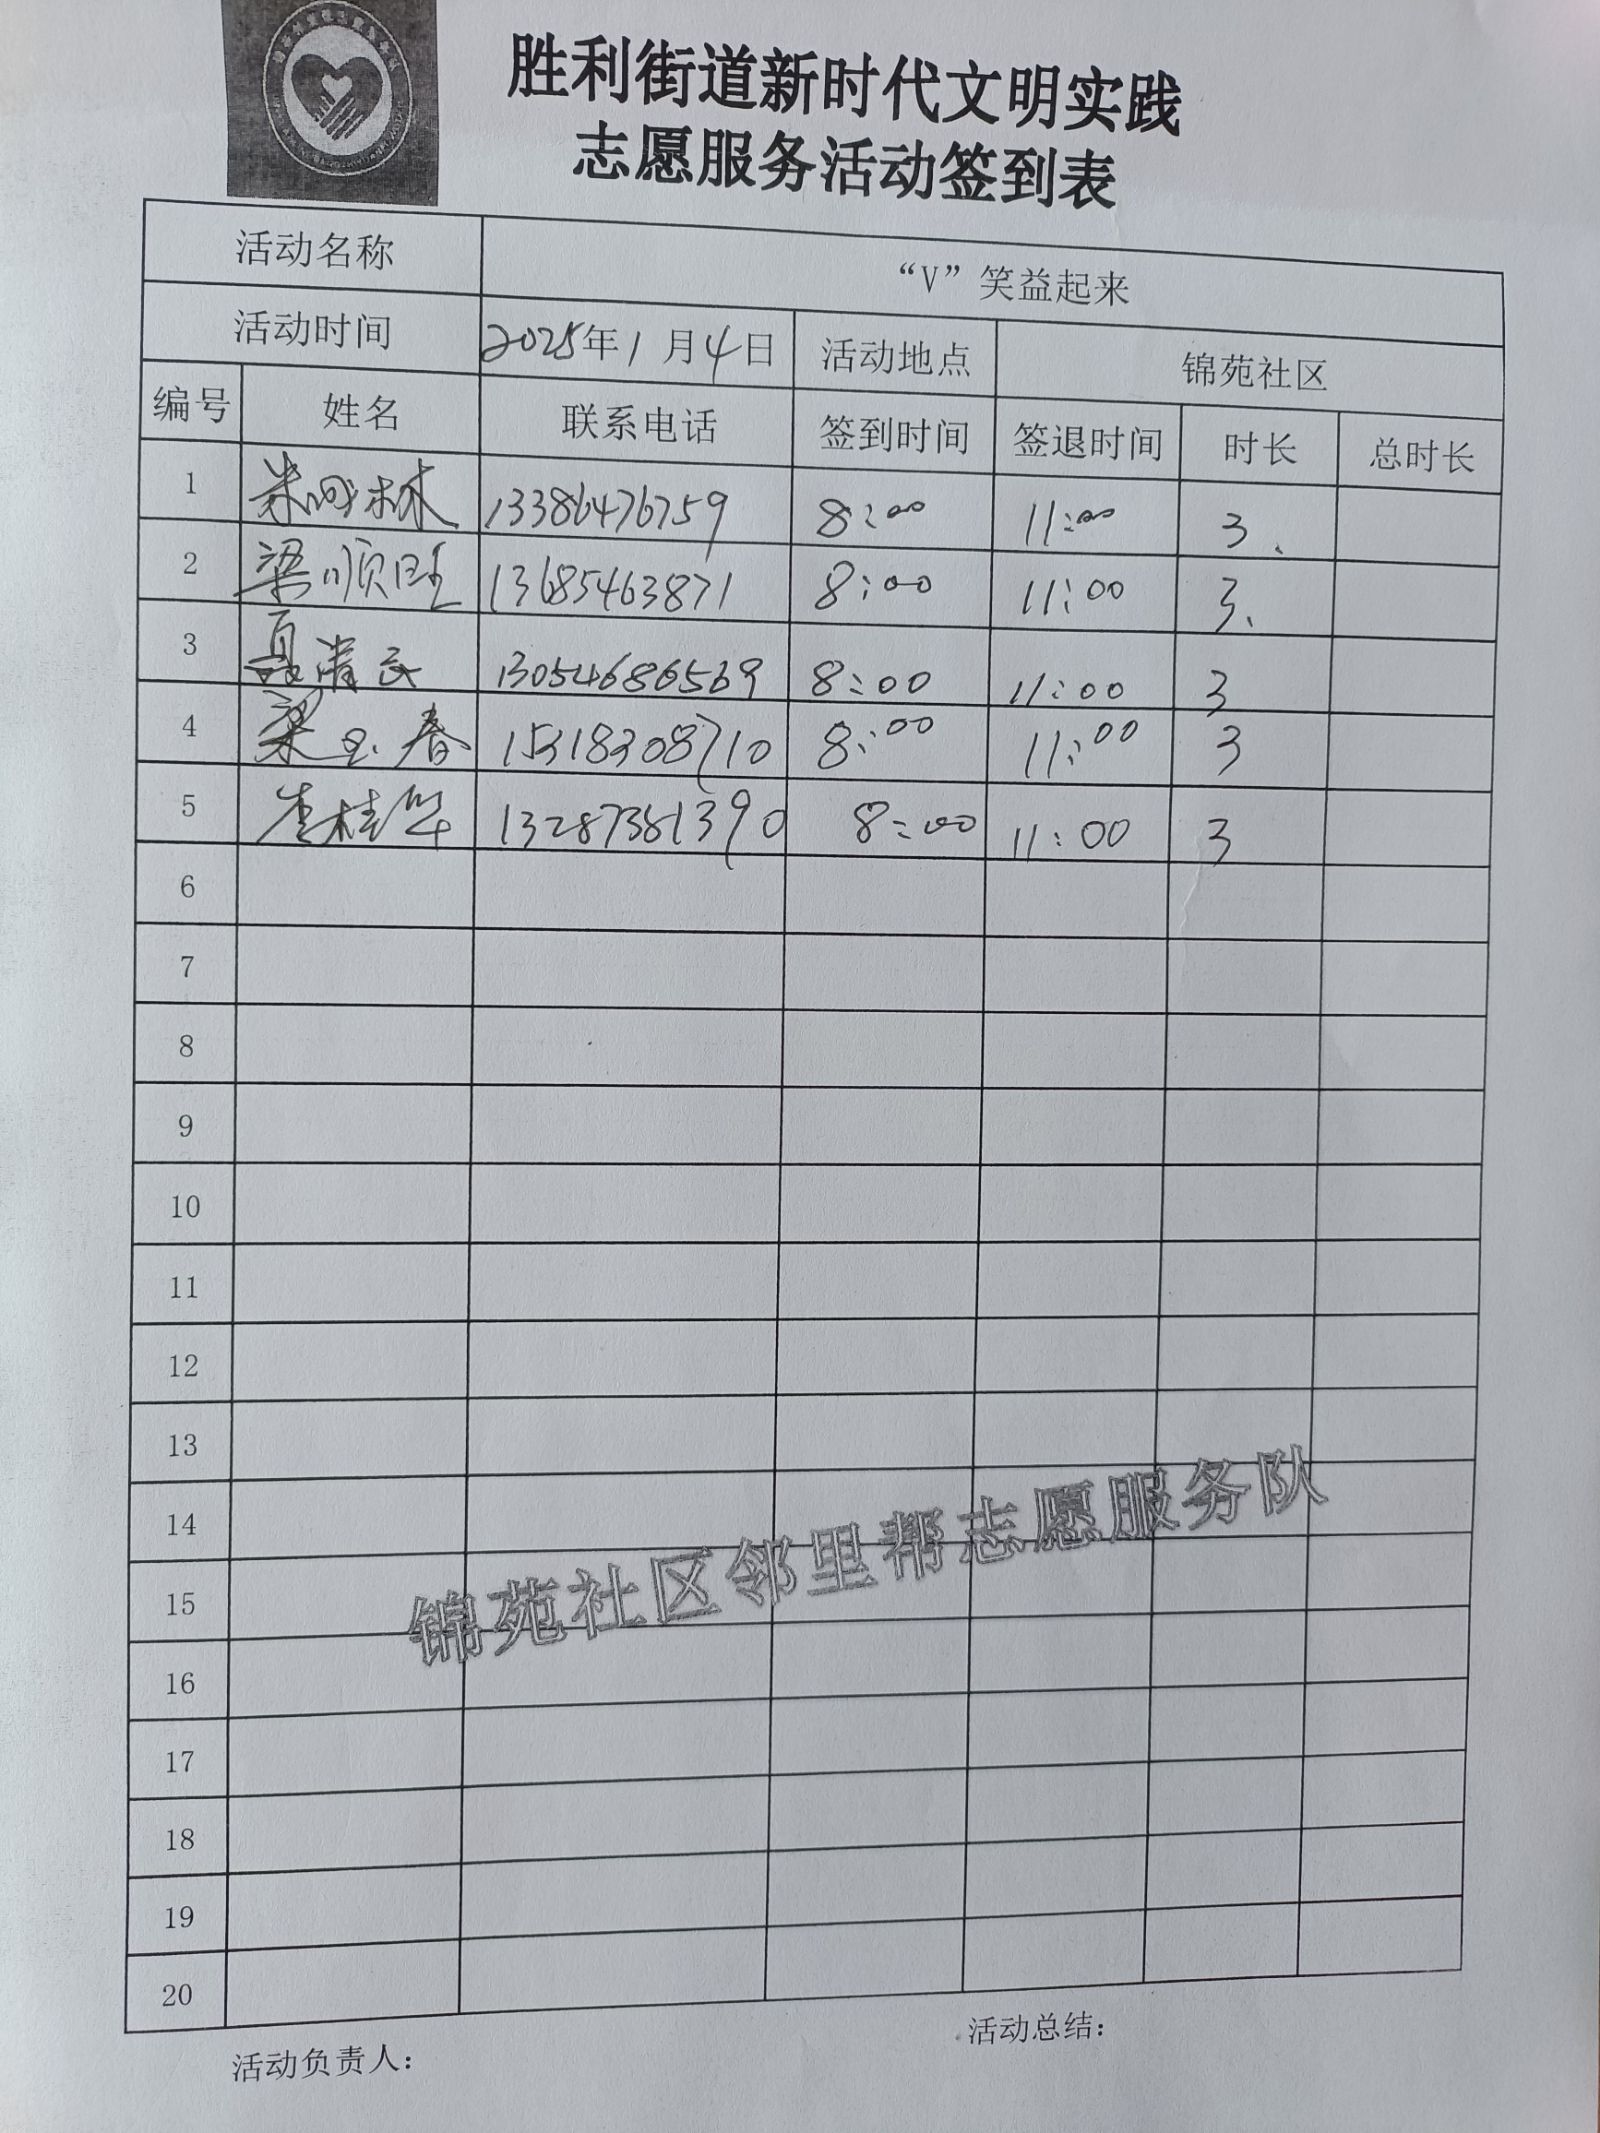 胜利街道新时代文明实践
志愿服务活动签到表
活动名称 “V”笑益起来
活动时间 2025年1月4日 活动地点 锦苑社区
编号 姓名 联系电话 签到时间 签退时间 时长 总时长
1 林 13386476759 8:00 11:00 3、
2 梁顺旺 13685463871 8:00 11:00 3、
3 夏清云 13054686569 8:00 11:00 3
4 梁玉春 15318308710 8:00 11:00 3
5 李桂华 13287381390 8:00 11:00 3
6
7
8
9
10
11
12
13
14
15
16
17
18
19
20
锦苑社区邻里帮志愿服务队
活动负责人： 活动总结：